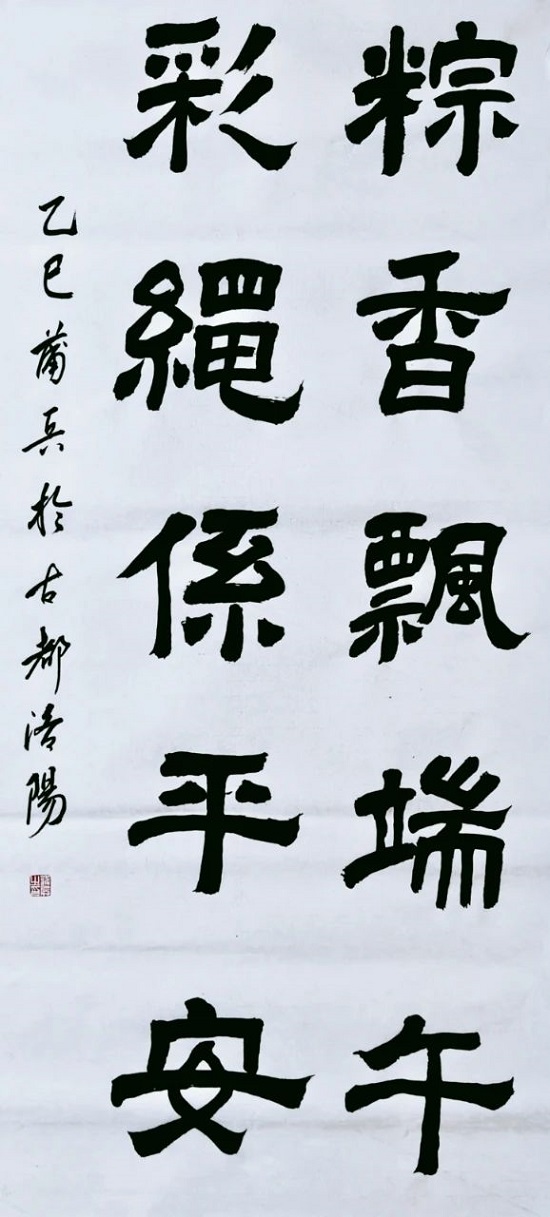 粽香飄端午
彩繩係平安
乙巳蒲兵於古都洛陽